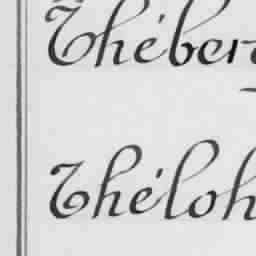 Théber
Théloh